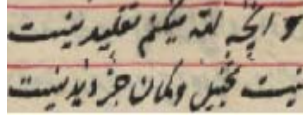 وانچه لله میکنم تقلید نیست
نیست تخییل و گمان جز دید نیست